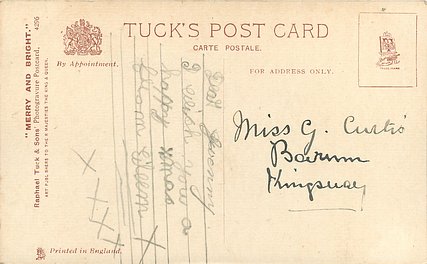 TUCK'S POST CARD
CARTE POSTALE.
By Appointment.
FOR ADDRESS ONLY.
"MERRY AND BRIGHT." 4296
Raphael Tuck & Sons' Photogravure Postcard,
ART PUBLISHERS TO THEIR MAJESTIES THE KING & QUEEN.
Printed in England.
I wish you a
happy xmas
from
X
X X X
Miss G. Curtis
Kingsway